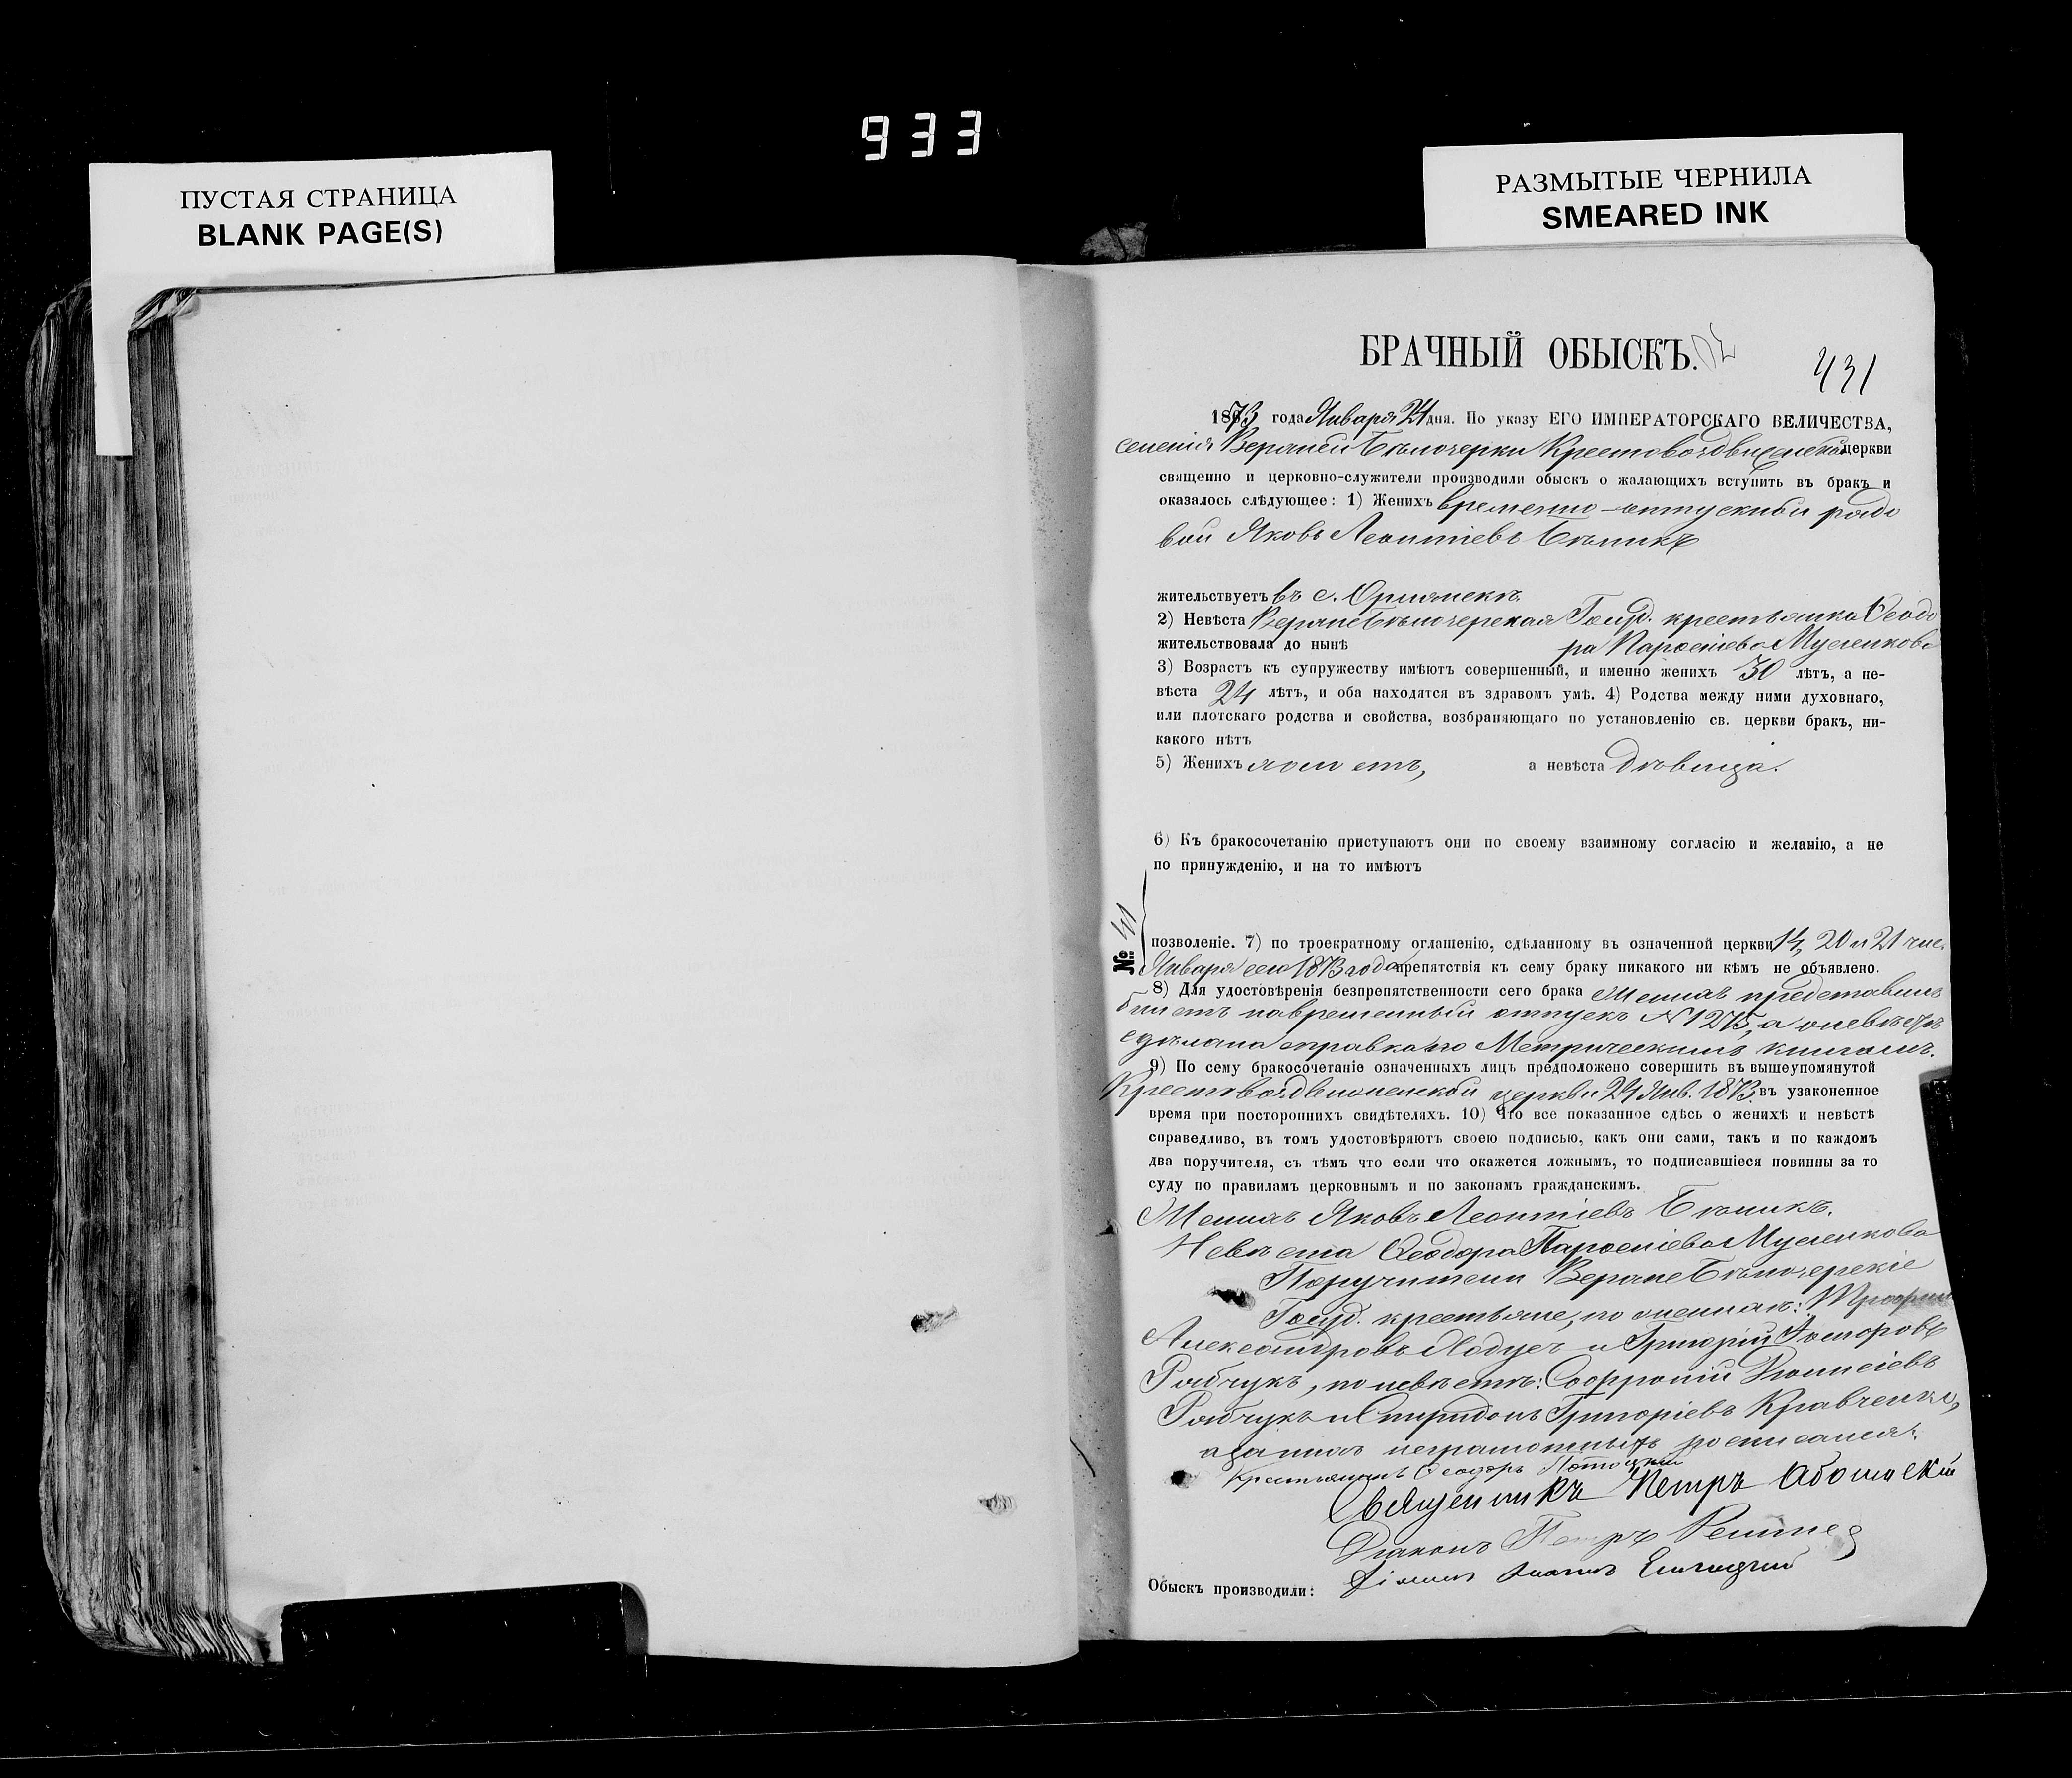 933
ПУСТАЯ СТРАНИЦА
BLANK PAGE(S)
РАЗМЫТЫЕ ЧЕРНИЛА
SMEARED INK
БРАЧНЫЙ ОБЫСКЪ.
431
1873 года Января 24 дня. По указу ЕГО ИМПЕРАТОРСКАГО ВЕЛИЧЕСТВА,
селенія Верхней Бѣлозерки Крестовоздвиженской церкви
священно и церковно-служители производили обыскъ о жалающихъ вступить въ бракъ и
оказалось слѣдующее: 1) Женихъ временно-отпускный рядо
вой Яковъ Леонтіевъ Бѣликъ
жительствуетъ въ с.
2) Невѣста Верхнебѣлозерская Госуд. крестьянка Ѳеодо
жительствовала до нынѣ ра Парѳеніева Мусіенкова
3) Возрастъ къ супружеству имѣютъ совершенный, и именно женихъ 30 лѣтъ, а не-
вѣста 24 лѣтъ, и оба находятся въ здравомъ умѣ. 4) Родства между ними духовнаго,
или плотскаго родства и свойства, возбраняющаго по установленію св. церкви бракъ, ни-
какого нѣтъ
5) Женихъ холостъ, а невѣста дѣвица.
6) Къ бракосочетанію приступаютъ они по своему взаимному согласію и желанію, а не
по принужденію, и на то имѣютъ
№ 41
позволеніе. 7) по троекратному оглашенію, сдѣланному въ означенной церкви 14, 20 и 21 чис.
Января сего 1873 года препятствія къ сему браку никакого ни кѣмъ не объявлено.
8) Для удостовѣренія безпрепятственности сего брака Женихъ представилъ
билетъ на временный отпускъ № 1275, а о невѣстѣ
сдѣлана справка по Метрическимъ книгамъ.
9) По сему бракосочетаніе означенныхъ лицъ предположено совершить въ вышеупомянутой
Крестовоздвиженской церкви 24 Янв. 1873 въ узаконенное
время при постороннихъ свидѣтеляхъ. 10) Что все показанное сдѣсь о женихѣ и невѣстѣ
справедливо, въ томъ удостовѣряютъ своею подписью, какъ они сами, такъ и по каждомъ
два поручителя, съ тѣмъ что если что окажется ложнымъ, то подписавшіеся повинны за то
суду по правиламъ церковнымъ и по законамъ гражданскимъ.
Женихъ Яковъ Леонтіевъ Бѣликъ.
Невѣста Ѳеодора Парѳеніева Мусіенкова
Поручители Верхнебѣлозерскіе
Госуд. крестьяне, по женихѣ: Трофим
Александровъ и Григорій
Рябчукъ, по невѣстѣ: Софроній Діонисіевъ
Рябчукъ и Спиридонъ Григоріевъ Кравченко,
а за нихъ неграмотныхъ росписался:
Крестьянинъ Ѳеодоръ
Священникъ Петръ
Діаконъ Петръ
Обыскъ производили: